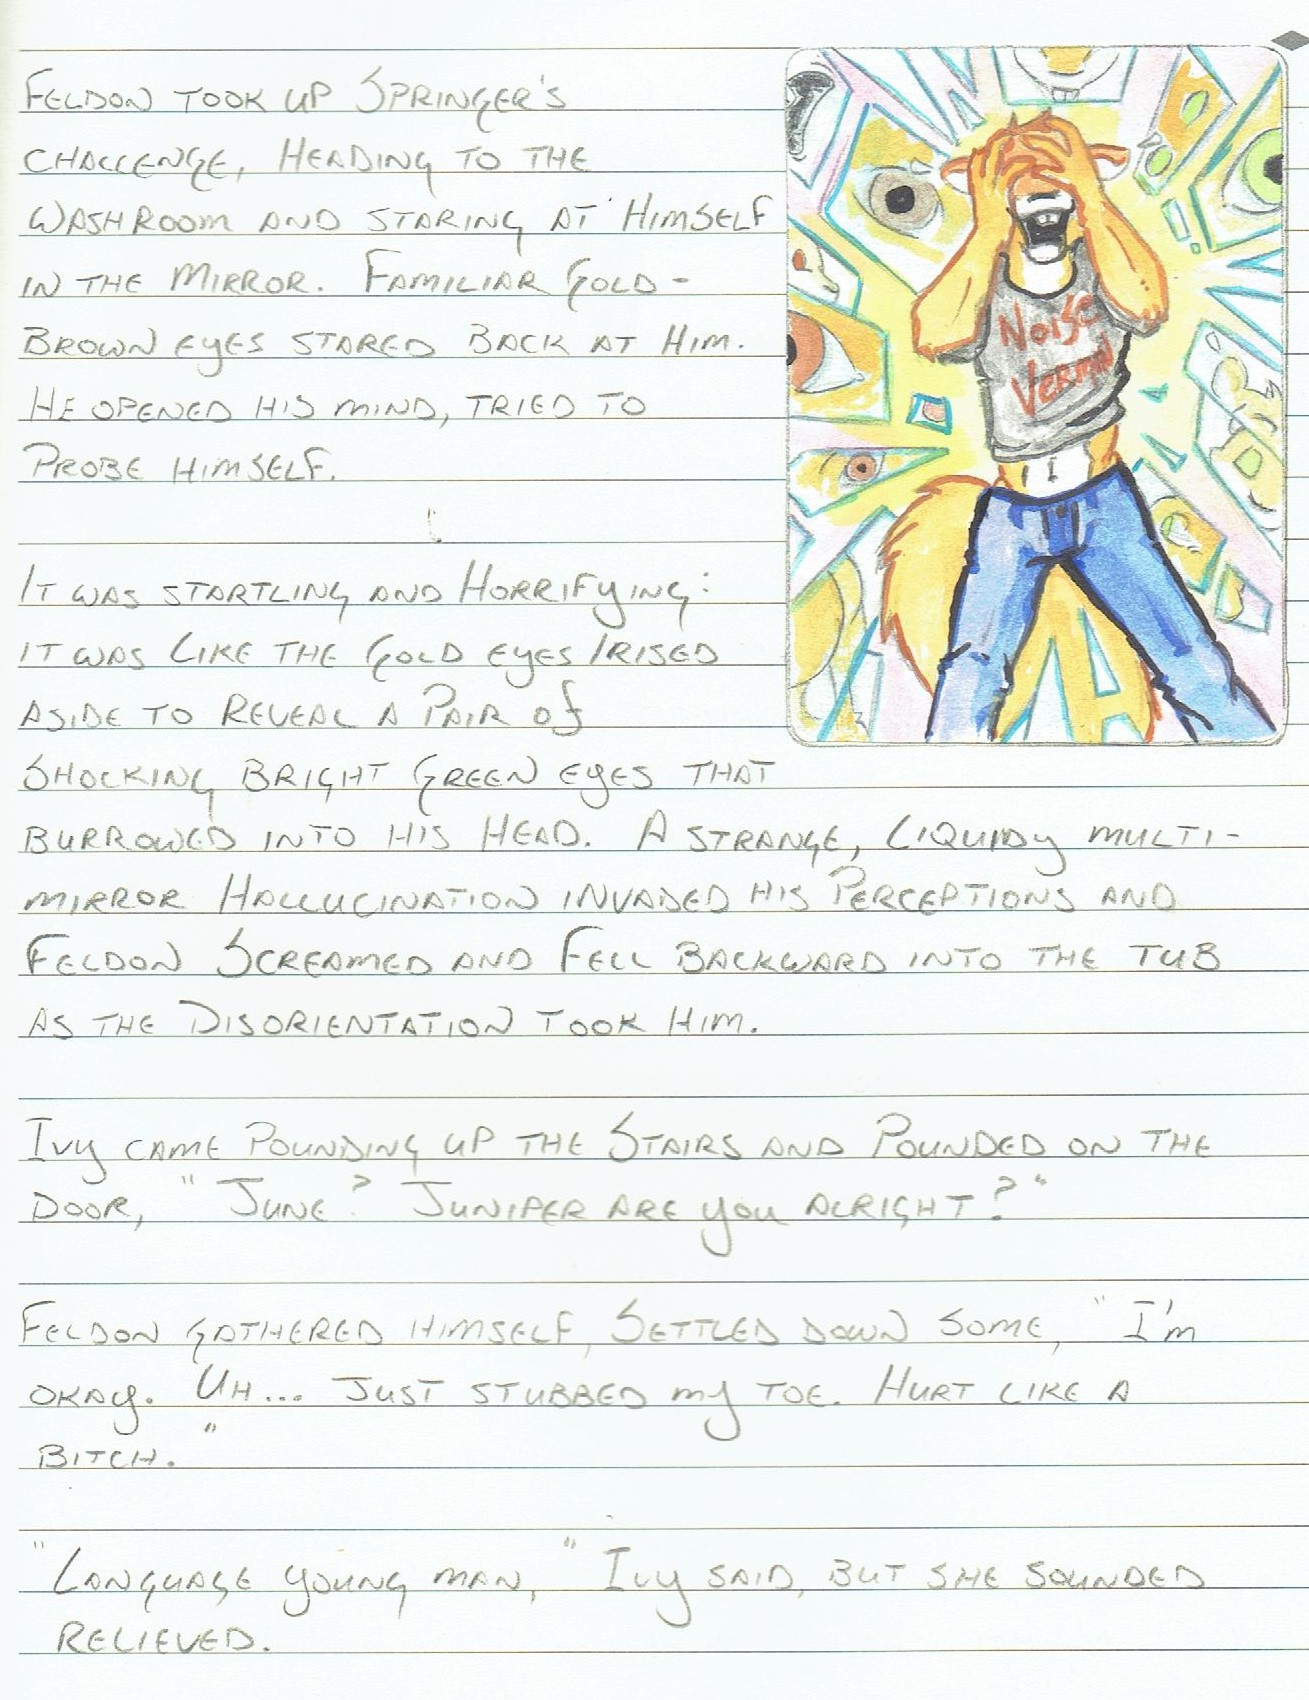 Feldon took up Springer's
challenge, heading to the
washroom and staring at himself
in the mirror. Familiar gold-
brown eyes stared back at him.
He opened his mind, tried to
probe himself.
It was startling and horrifying:
it was like the gold eyes irised
aside to reveal a pair of
shocking bright green eyes that
burrowed into his head. A strange, liquidy multi-
mirror hallucination invaded his perceptions and
Feldon screamed and fell backward into the tub
as the disorientation took him.
Ivy came pounding up the stairs and pounded on the
door, "June? Juniper are you alright?"
Feldon gathered himself, settled down some, "I'm
okay. Uh... just stubbed my toe. Hurt like a
bitch."
"Language young man," Ivy said, but she sounded
relieved.
Noise
Vermin